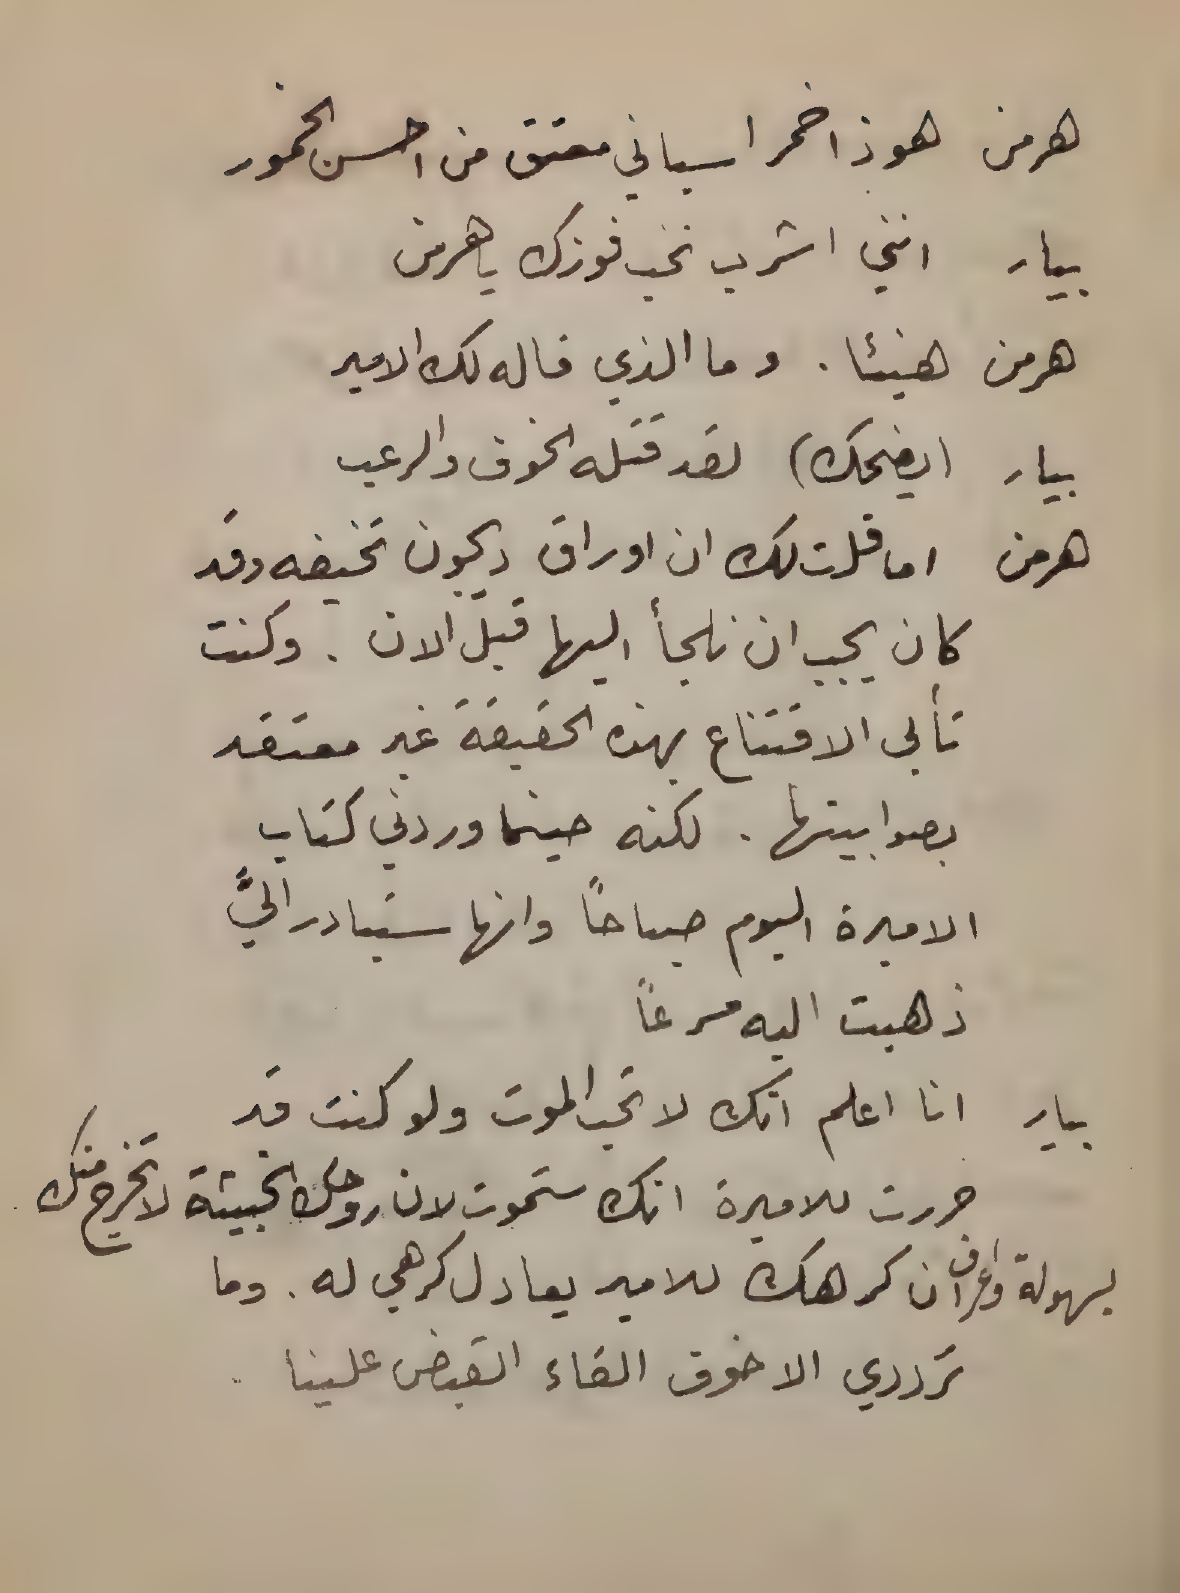 هرمن هوذا خمر اسباني معتق من احسن الخمور
بيار انني اشرب نخب فوزك يا هرمن
هرمن هنيئا . وما الذي قاله لك الامير
بيار (يضحك) لقد قتله الخوف والرعب
هرمن اما قلت لك ان اوراق ديجون تخيفه وقد
كان يجب ان نلجأ اليها قبل الان . وكنت
تأبى الاقتناع بهذه الحقيقة غير معتقد
بصوابيتها . لكنه حينما وردني كتاب
الاميرة اليوم صباحاً وانها ستبادر اليَّ
ذهبت اليه مسرعاً
بيار انا اعلم انك لا تحب الموت ولو كنت قد
حررت للاميرة انك ستموت لان روحك الخبيثة لا تخرج منك
بسهولة واعرف ان كرهك للامير يعادل كرهي له . وما
ترددي الا خوف القاء القبض علينا